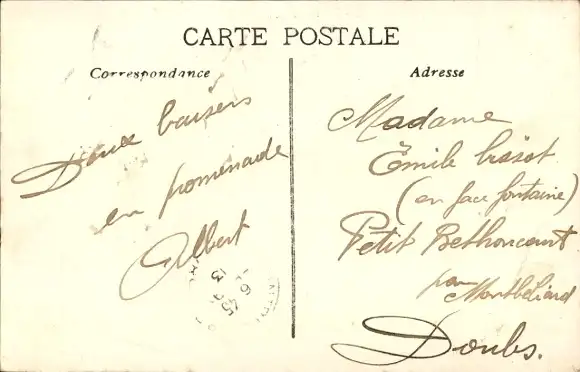 CARTE POSTALE
Correspondance
Doux baisers
en promenade
Albert
Adresse
Madame
Emile
(en face fontaine)
Petit Bethoncourt
par Montbéliard
Doubs.